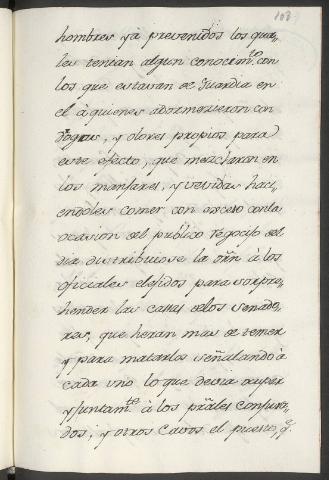 103
hombres yà prevenidos los qua,,
les tenian algun conocim.to con
los que estavan de Guardia en
el à quienes adormecieron con
drogas, y olores propios para
este efecto, que mezclaron en
los manjares, y vevidas haci,,
endoles comer con exceso con la
ocasion del publico regocijo del
dia distribuiose la orñ à los
oficiales elejidos para sorpre,,
hender las casas delos Senado,,
res, que heran mas de temer
y para matarlos señalando à
cada uno lo que devia ocuper
y juntam.te à los prãles conjura,,
dos, y otros Cavos el puesto, q.e